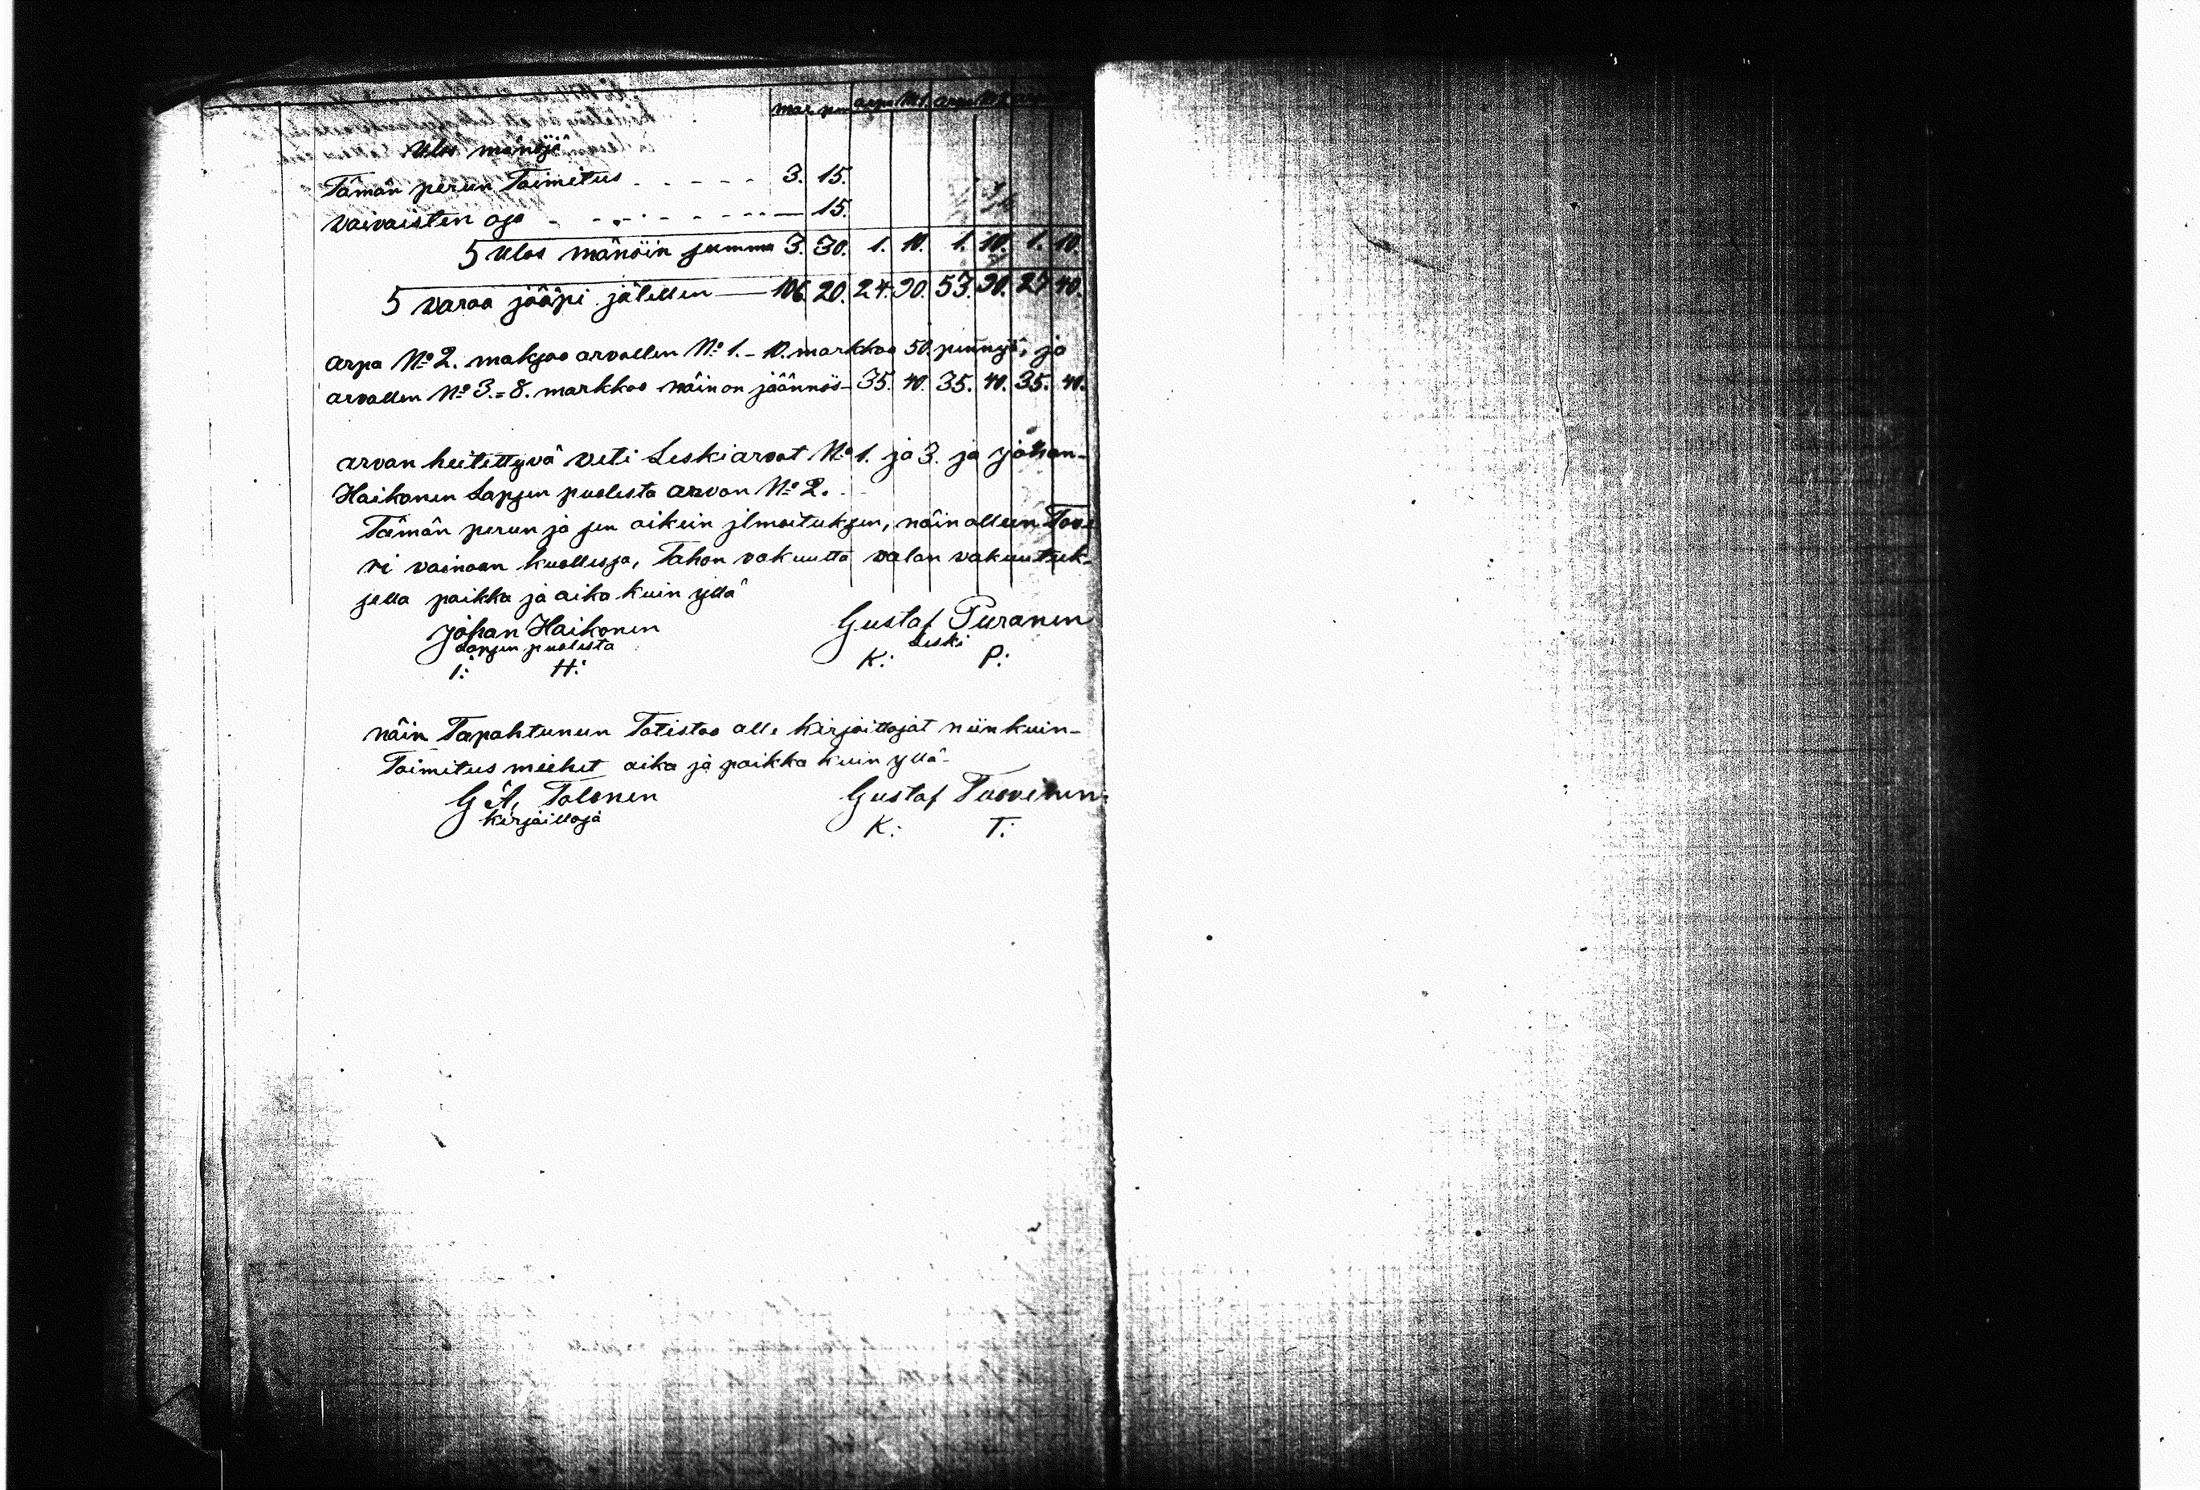 mar. pen arpa N:1. arpa N:2.
Ulos mänöjä
Tämän perun Toimitus - - - - - 3. 15.
vaivaisten osa - - - - - - - - 15.
5 Ulos mänöin summa 3. 30. 1. 10. 1. 10. 1. 10.
5 varaa jääpi jälellen — 106. 20. 24. 90. 53. 90. 27. 40.
arpa N:o 2. maksaa arvallen N:o 1. - 10. markkaa 50. pennyä, ja
arvallen N:o 3. = 8. markkaa näin on jäännös - 35. 40. 35. 40. 35. 40.
arvan heitettyvä veti Leski arvat N:o 1. ja 3. ja Johan-
Haikonen Lapsen puolesta arvan N:o 2.
Tämän perun ja sen oikein ilmoituksen, näin olleen Tove
ri vainaan kuollessa, Tahon vakuutta valan vakuutuk-
sella paikka ja aika kuin yllä
Johan Haikonen Gustaf Puranen
Lapsen puolesta Leski
I: H: K: P:
näin Tapahtunun Totistaa alle kirjoittajat niinkuin-
Toimitus miehet aika ja paikka kuin yllä-
G A, Tolonen Gustaf Tuovinen
Kirjoittaja K: T: